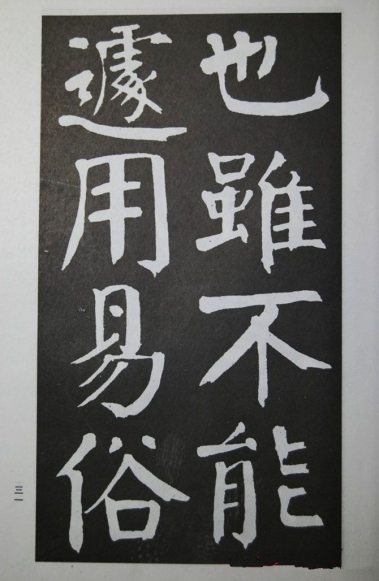 也雖不能
遽用易俗
三一